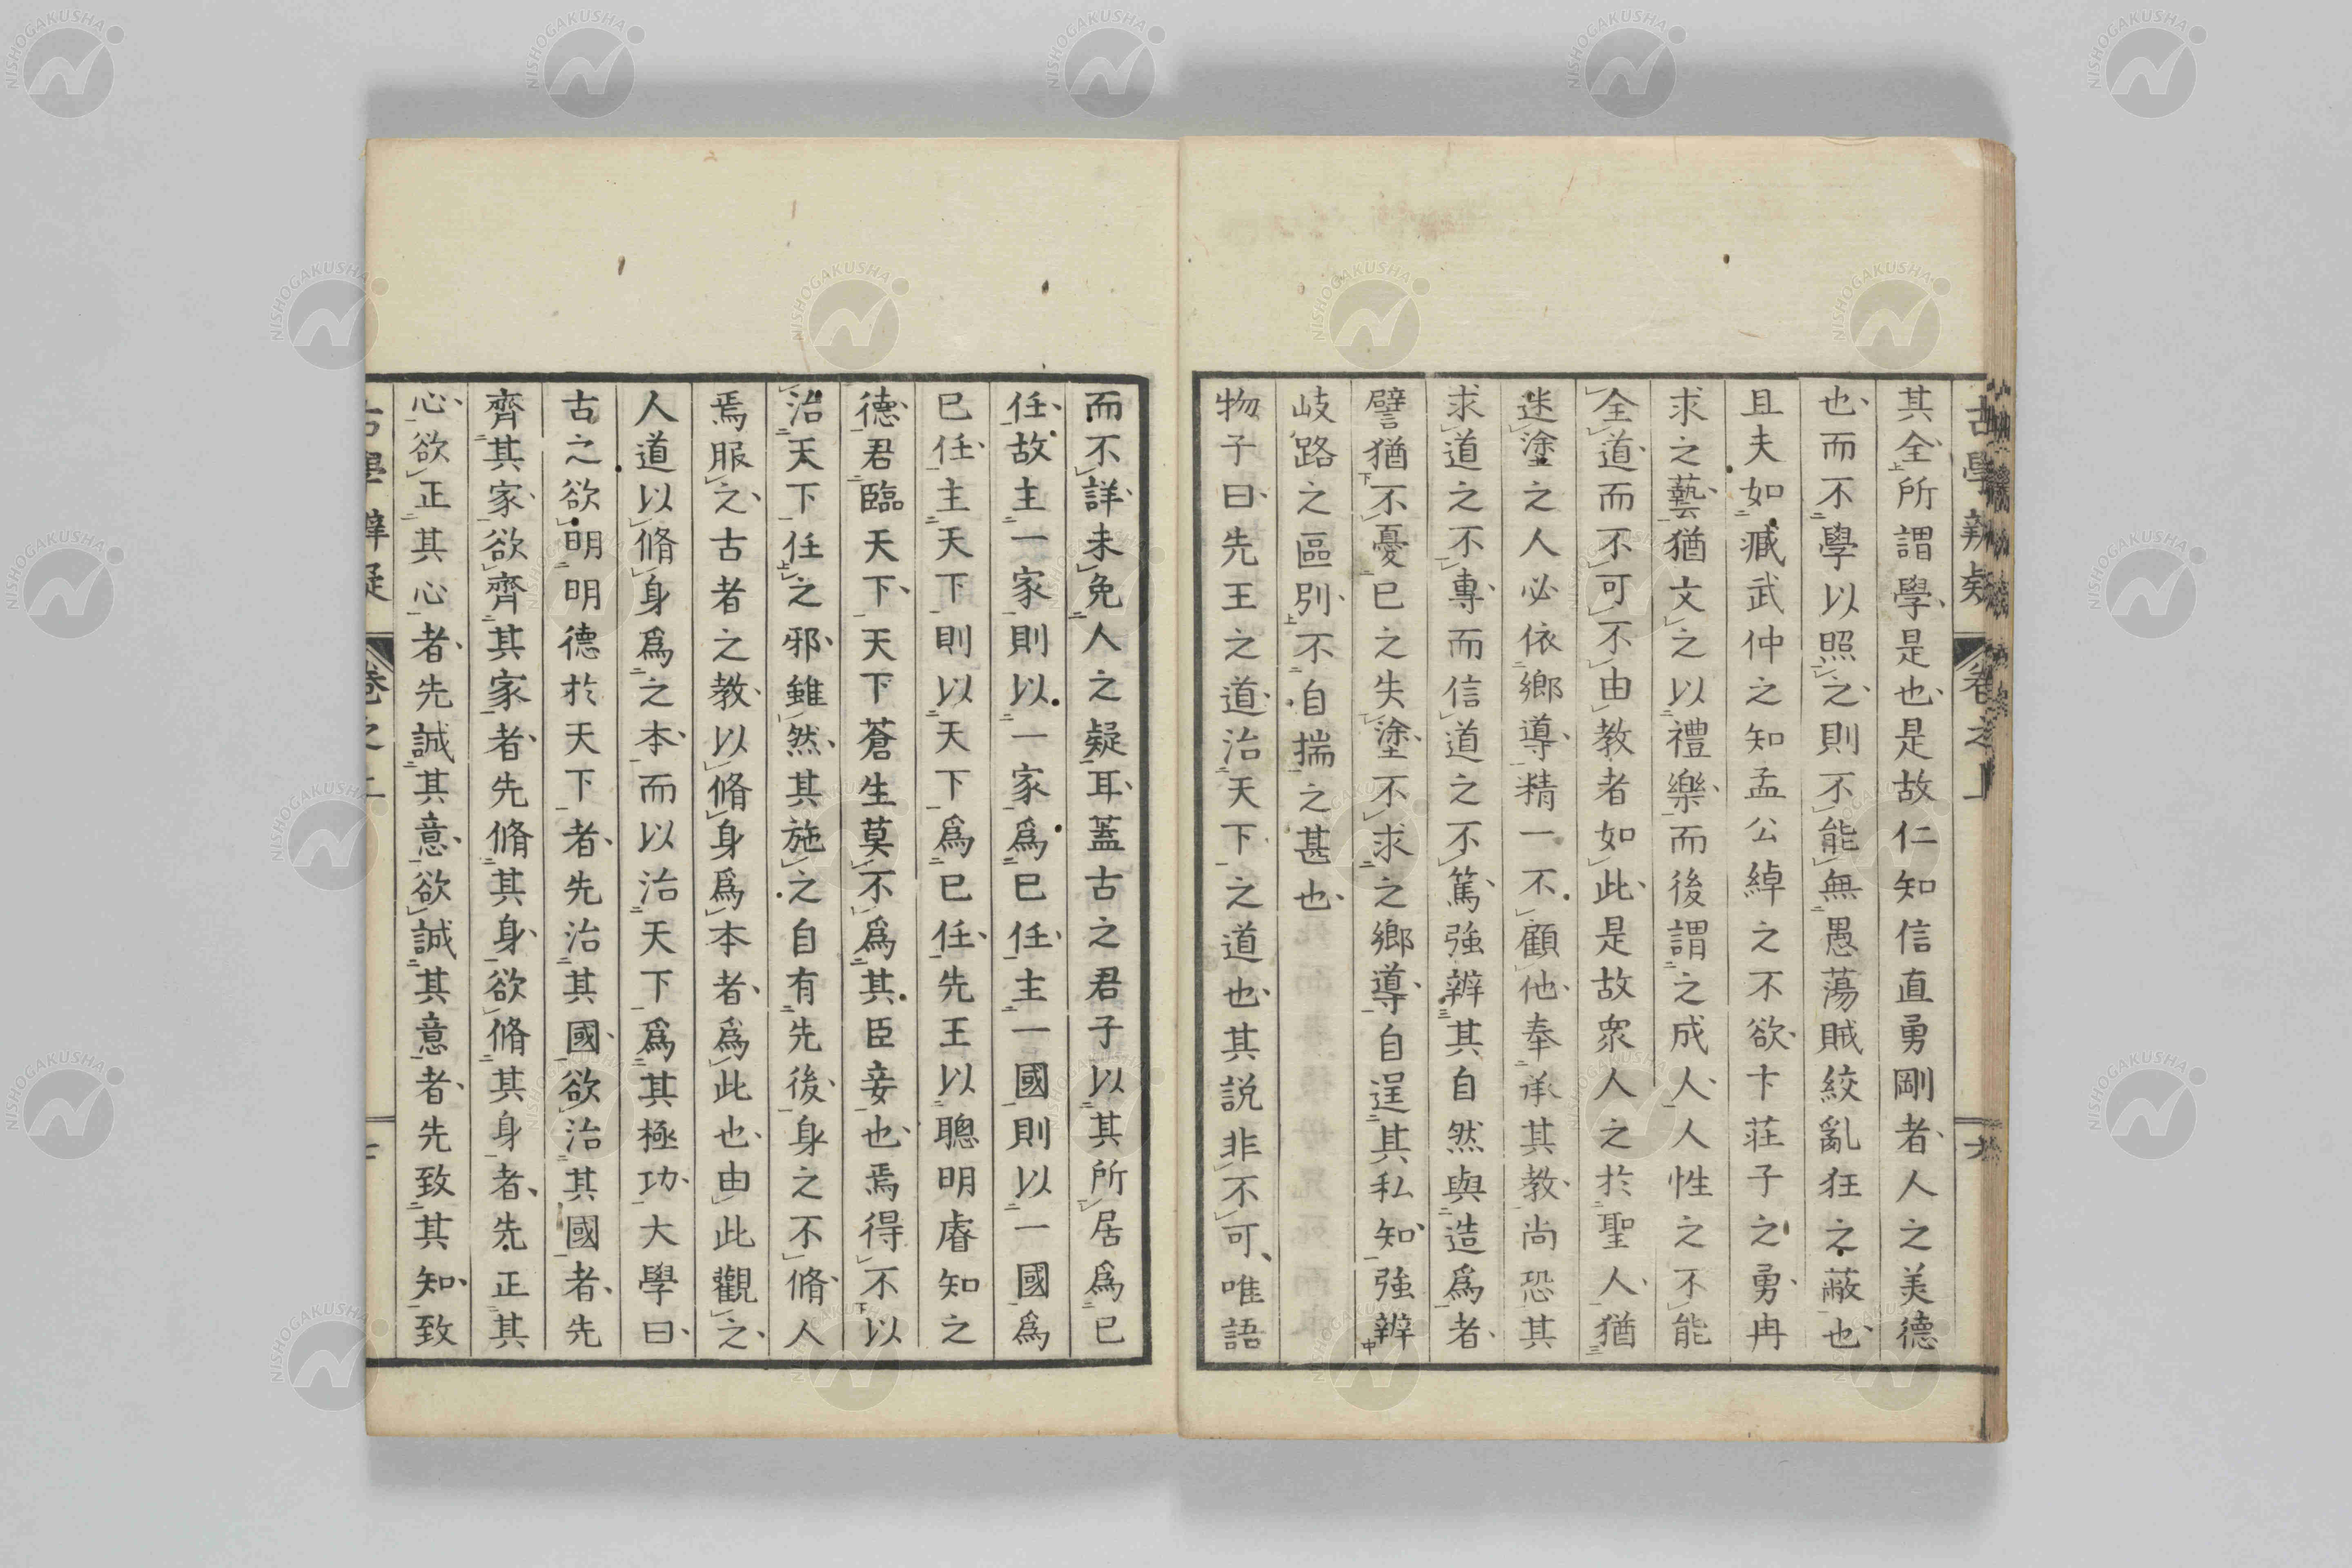 古學辨疑 卷之上
其全所謂學是也是故仁知信直勇剛者人之美德
也而不學以照之則不能無愚蕩賊絞亂狂之蔽也
且夫如臧武仲之知孟公綽之不欲卞莊子之勇冉
求之藝猶文之以禮樂而後謂之成人人性之不能
全道而不可不由教者如此是故衆人之於聖人猶
迷塗之人必依鄉導精一不顧他奉承其教尚恐其
求道之不專而信道之不篤強辨其自然與造爲者
譬猶不憂已之失塗不求之鄉導自逞其私知強辨
岐路之區別不自揣之甚也
物子曰先王之道治天下之道也其說非不可唯語
而不詳未免人之疑耳蓋古之君子以其所居爲已
任故主一家則以一家爲已任主一國則以一國爲
已任主天下則以天下爲已任先王以聰明睿知之
德君臨天下天下蒼生莫不爲其臣妾也焉得不以
治天下任之邪雖然其施之自有先後身之不脩人
焉服之古者之教以脩身爲本者爲此也由此觀之
人道以脩身爲之本而以治天下爲其極功大學曰
古之欲明明德於天下者先治其國欲治其國者先
齊其家欲齊其家者先脩其身欲脩其身者先正其
心欲正其心者先誠其意欲誠其意者先致其知致